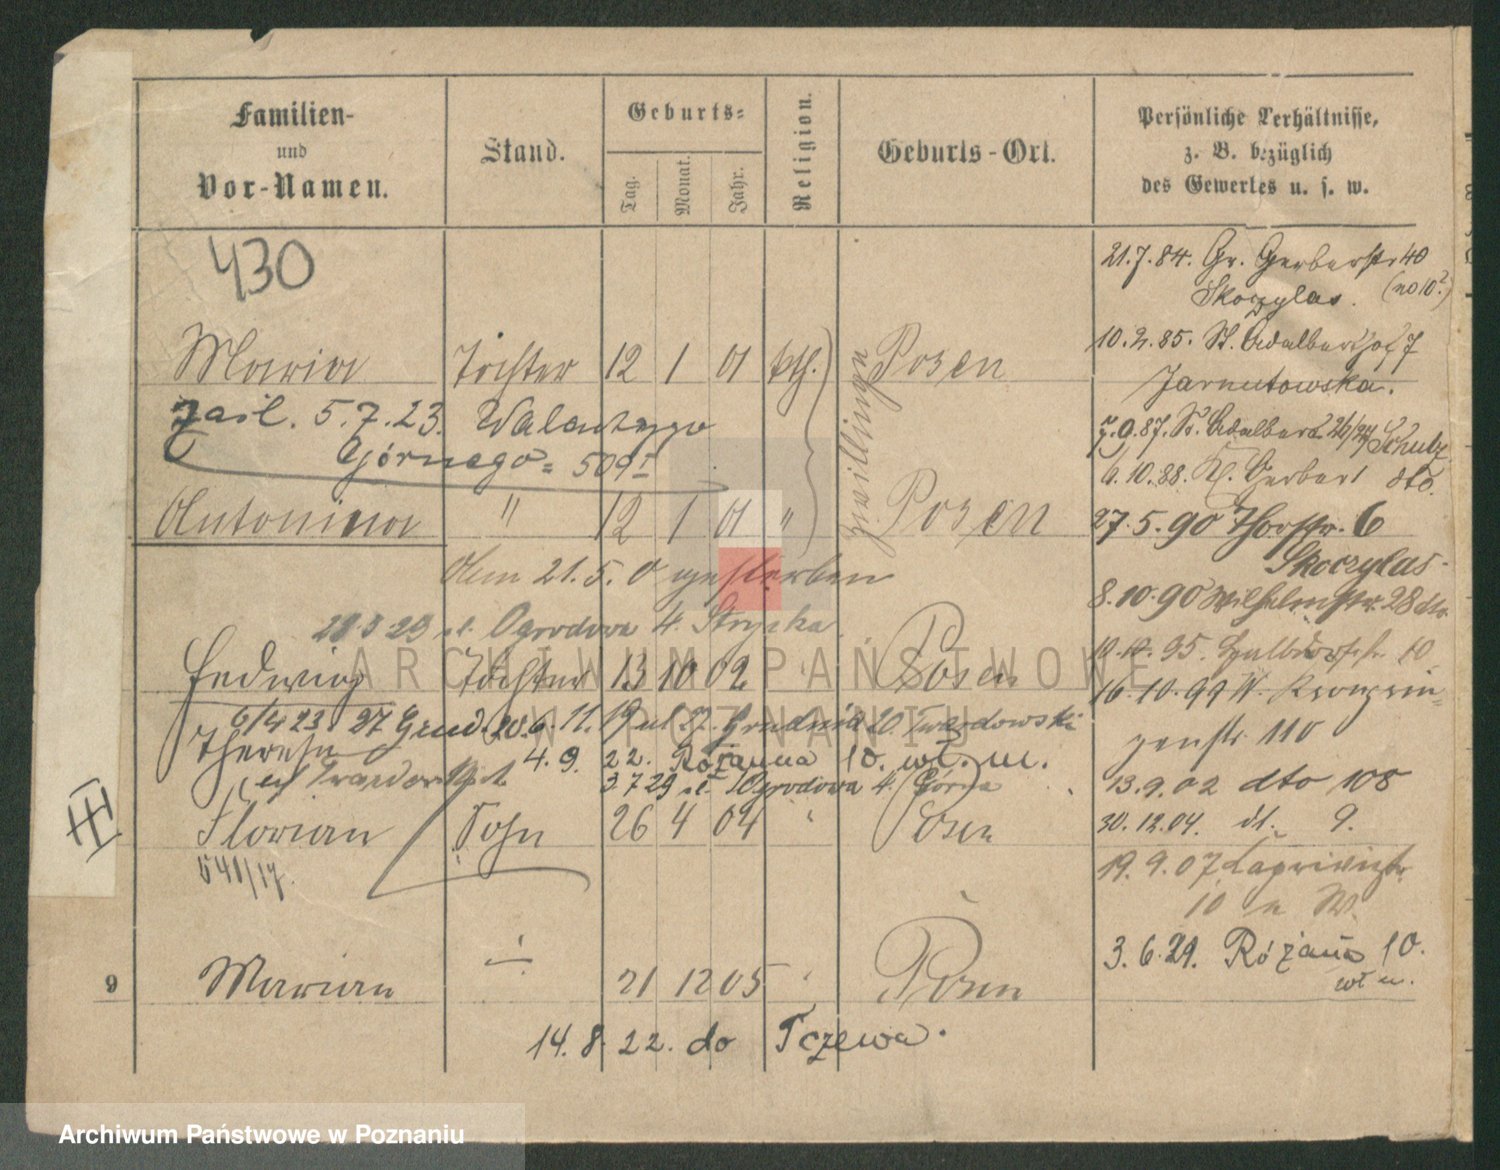 Familien-
und
Vor-Namen.
Stand.
Geburts=
Tag.
Monat.
Jahr.
Religion.
Geburts-Ort.
Persönliche Verhältnisse,
z. B. bezüglich
des Gewerbes u. s. w.
430
21.7.84. Gr. Gerberstr 40
Skoczylas. (no 10²)
10.2.85. St. Adalberthof 7
Maria Tochter 12 1 01 kth. Posen
Zwillinge
Jarnutowska.
zaśl. 5.7.23. Walentego
Górnego = 509
7.9.87. St. Adalbert 26/27 Schulz
6.10.88. Kl. Gerberst dto.
Antonina " 12 1 01 " Posen
27.5.90 Thorstr. 6
Skoczylas
Am 21.5.0 gestorben
8.10.90 Wilhelmstr. 28 dto.
23 Ogrodowa 4. Stryska
95. Halbdorfstr. 10
Hedwig Tochter 13 10 02 Posen
16.10.99 W. Kronprin=
zenstr. 110
6/4 23 27 Grud. 20.6 11. 19 27. Grudnia 20. Twardowski
Theresa 4.9. 22. Różanna 10. wł. m.
13.9.02 dto 108
3 7 29 Ogrodowa 4. Górna
Florian Sohn 26 4 04 Posen
30.12.04. dt. 9.
541/17.
19.9.07
10 W.
III
3.6.21. Różana 10.
wł m.
9 Marian 21 12 05 Posen
14.8.22. do Tczewa.
ARCHIWUM PAŃSTWOWE
W POZNANIU
Archiwum Państwowe w Poznaniu